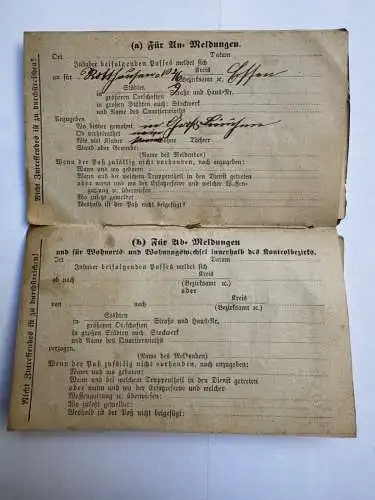 Nicht Zutreffendes ist zu durchstreichen!
(a) Für An-Meldungen.
Ort Datum
Inhaber beifolgenden Passes meldet sich
Kreis
an für (Bezirksamt ec.) Essen
Städten
in größeren Ortschaften Straße und Haus-Nr.
in großen Städten auch: Stockwerk
und Name des Quartierwirths
Angezogen
Wo bisher gemeldet
Ob verheirathet
Wie viel Kinder Töchter
Stand oder Gewerbe:
(Name des Meldenden)
Wenn der Paß zufällig nicht vorhanden, noch anzugeben:
Wann und wo geboren:
Wann und bei welchem Truppentheil in den Dienst getreten
oder wann und wo der Ersatzreserve und welcher Waffen-
gattung ec. überwiesen:
Wo zuletzt gemeldet
Weshalb ist der Paß nicht beigefügt?
Nicht Zutreffendes ist zu durchstreichen!
(b) Für Ab-Meldungen
und für Wohnorts- und Wohnungswechsel innerhalb des Kontrolbezirks.
Ort Datum
Inhaber beifolgenden Passes meldet sich
Kreis
ab nach (Bezirksamt ec.)
oder
Kreis
von nach (Bezirksamt ec.)
Städten
in größeren Ortschaften Straße und Haus-Nr.
in großen Städten auch Stockwerk
und Name des Quartierwirths
verzogen.
(Name des Meldenden)
Wenn der Paß zufällig nicht vorhanden, noch anzugeben:
Wann und wo geboren:
Wann und bei welchem Truppentheil in den Dienst getreten
oder wann und wo der Ersatzreserve und welcher
Waffengattung ec. überwiesen:
Wo zuletzt gemeldet:
Weshalb ist der Paß nicht beigefügt: